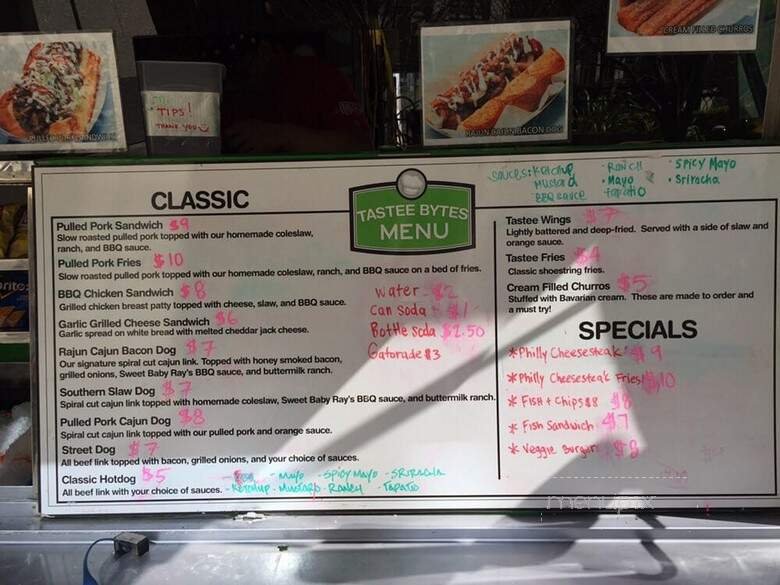 CREAM FILLED CHURROS
RAJUN CAJUN BACON DOG
TIPS!
THANK YOU
TASTEE BYTES
MENU
Sauces: Ketchup
Mustard
BBQ sauce
RANCH
Mayo
Tapatio
Spicy Mayo
Sriracha
CLASSIC
Pulled Pork Sandwich $9
Slow roasted pulled pork topped with our homemade coleslaw,
ranch, and BBQ sauce.
Pulled Pork Fries $10
Slow roasted pulled pork topped with our homemade coleslaw, ranch, and BBQ sauce on a bed of fries.
BBQ Chicken Sandwich $8
Grilled chicken breast patty topped with cheese, slaw, and BBQ sauce.
Garlic Grilled Cheese Sandwich $6
Garlic spread on white bread with melted cheddar jack cheese.
Rajun Cajun Bacon Dog $7
Our signature spiral cut cajun link. Topped with honey smoked bacon,
grilled onions, Sweet Baby Ray's BBQ sauce, and buttermilk ranch.
Southern Slaw Dog $7
Spiral cut cajun link topped with homemade coleslaw, Sweet Baby Ray's BBQ sauce, and buttermilk ranch.
Pulled Pork Cajun Dog $8
Spiral cut cajun link topped with our pulled pork and orange sauce.
Street Dog $7
All beef link topped with bacon, grilled onions, and your choice of sauces.
Classic Hotdog $5
All beef link with your choice of sauces.
- Mayo - Spicy Mayo - Sriracha
- Ketchup - Mustard - Ranch - Tapatio
Water $2
Can soda $1
Bottle soda $2.50
Gatorade $3
Tastee Wings $7
Lightly battered and deep-fried. Served with a side of slaw and
orange sauce.
Tastee Fries $4
Classic shoestring fries.
Cream Filled Churros $5
Stuffed with Bavarian cream. These are made to order and
a must try!
SPECIALS
* Philly Cheesesteak $9
* Philly Cheesesteak Fries $10
* Fish + Chips $8 $8
* Fish Sandwich $7
* Veggie Burger $8
menupix